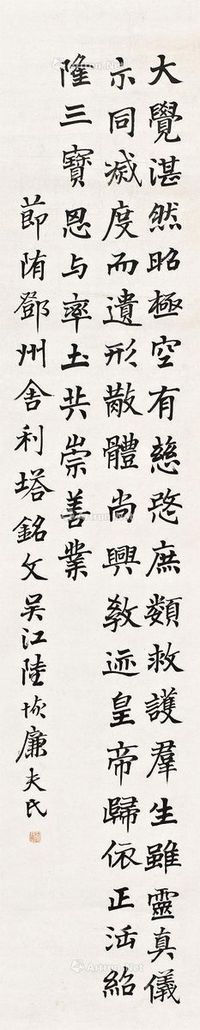 大覺湛然昭極空有慈愍庶類救護羣生雖靈真儀
示同滅度而遺形散體尚興教迹皇帝歸依正法紹
隆三寶思与率土共崇善業
節隋鄧州舍利塔銘文吴江陸恢廉夫氏